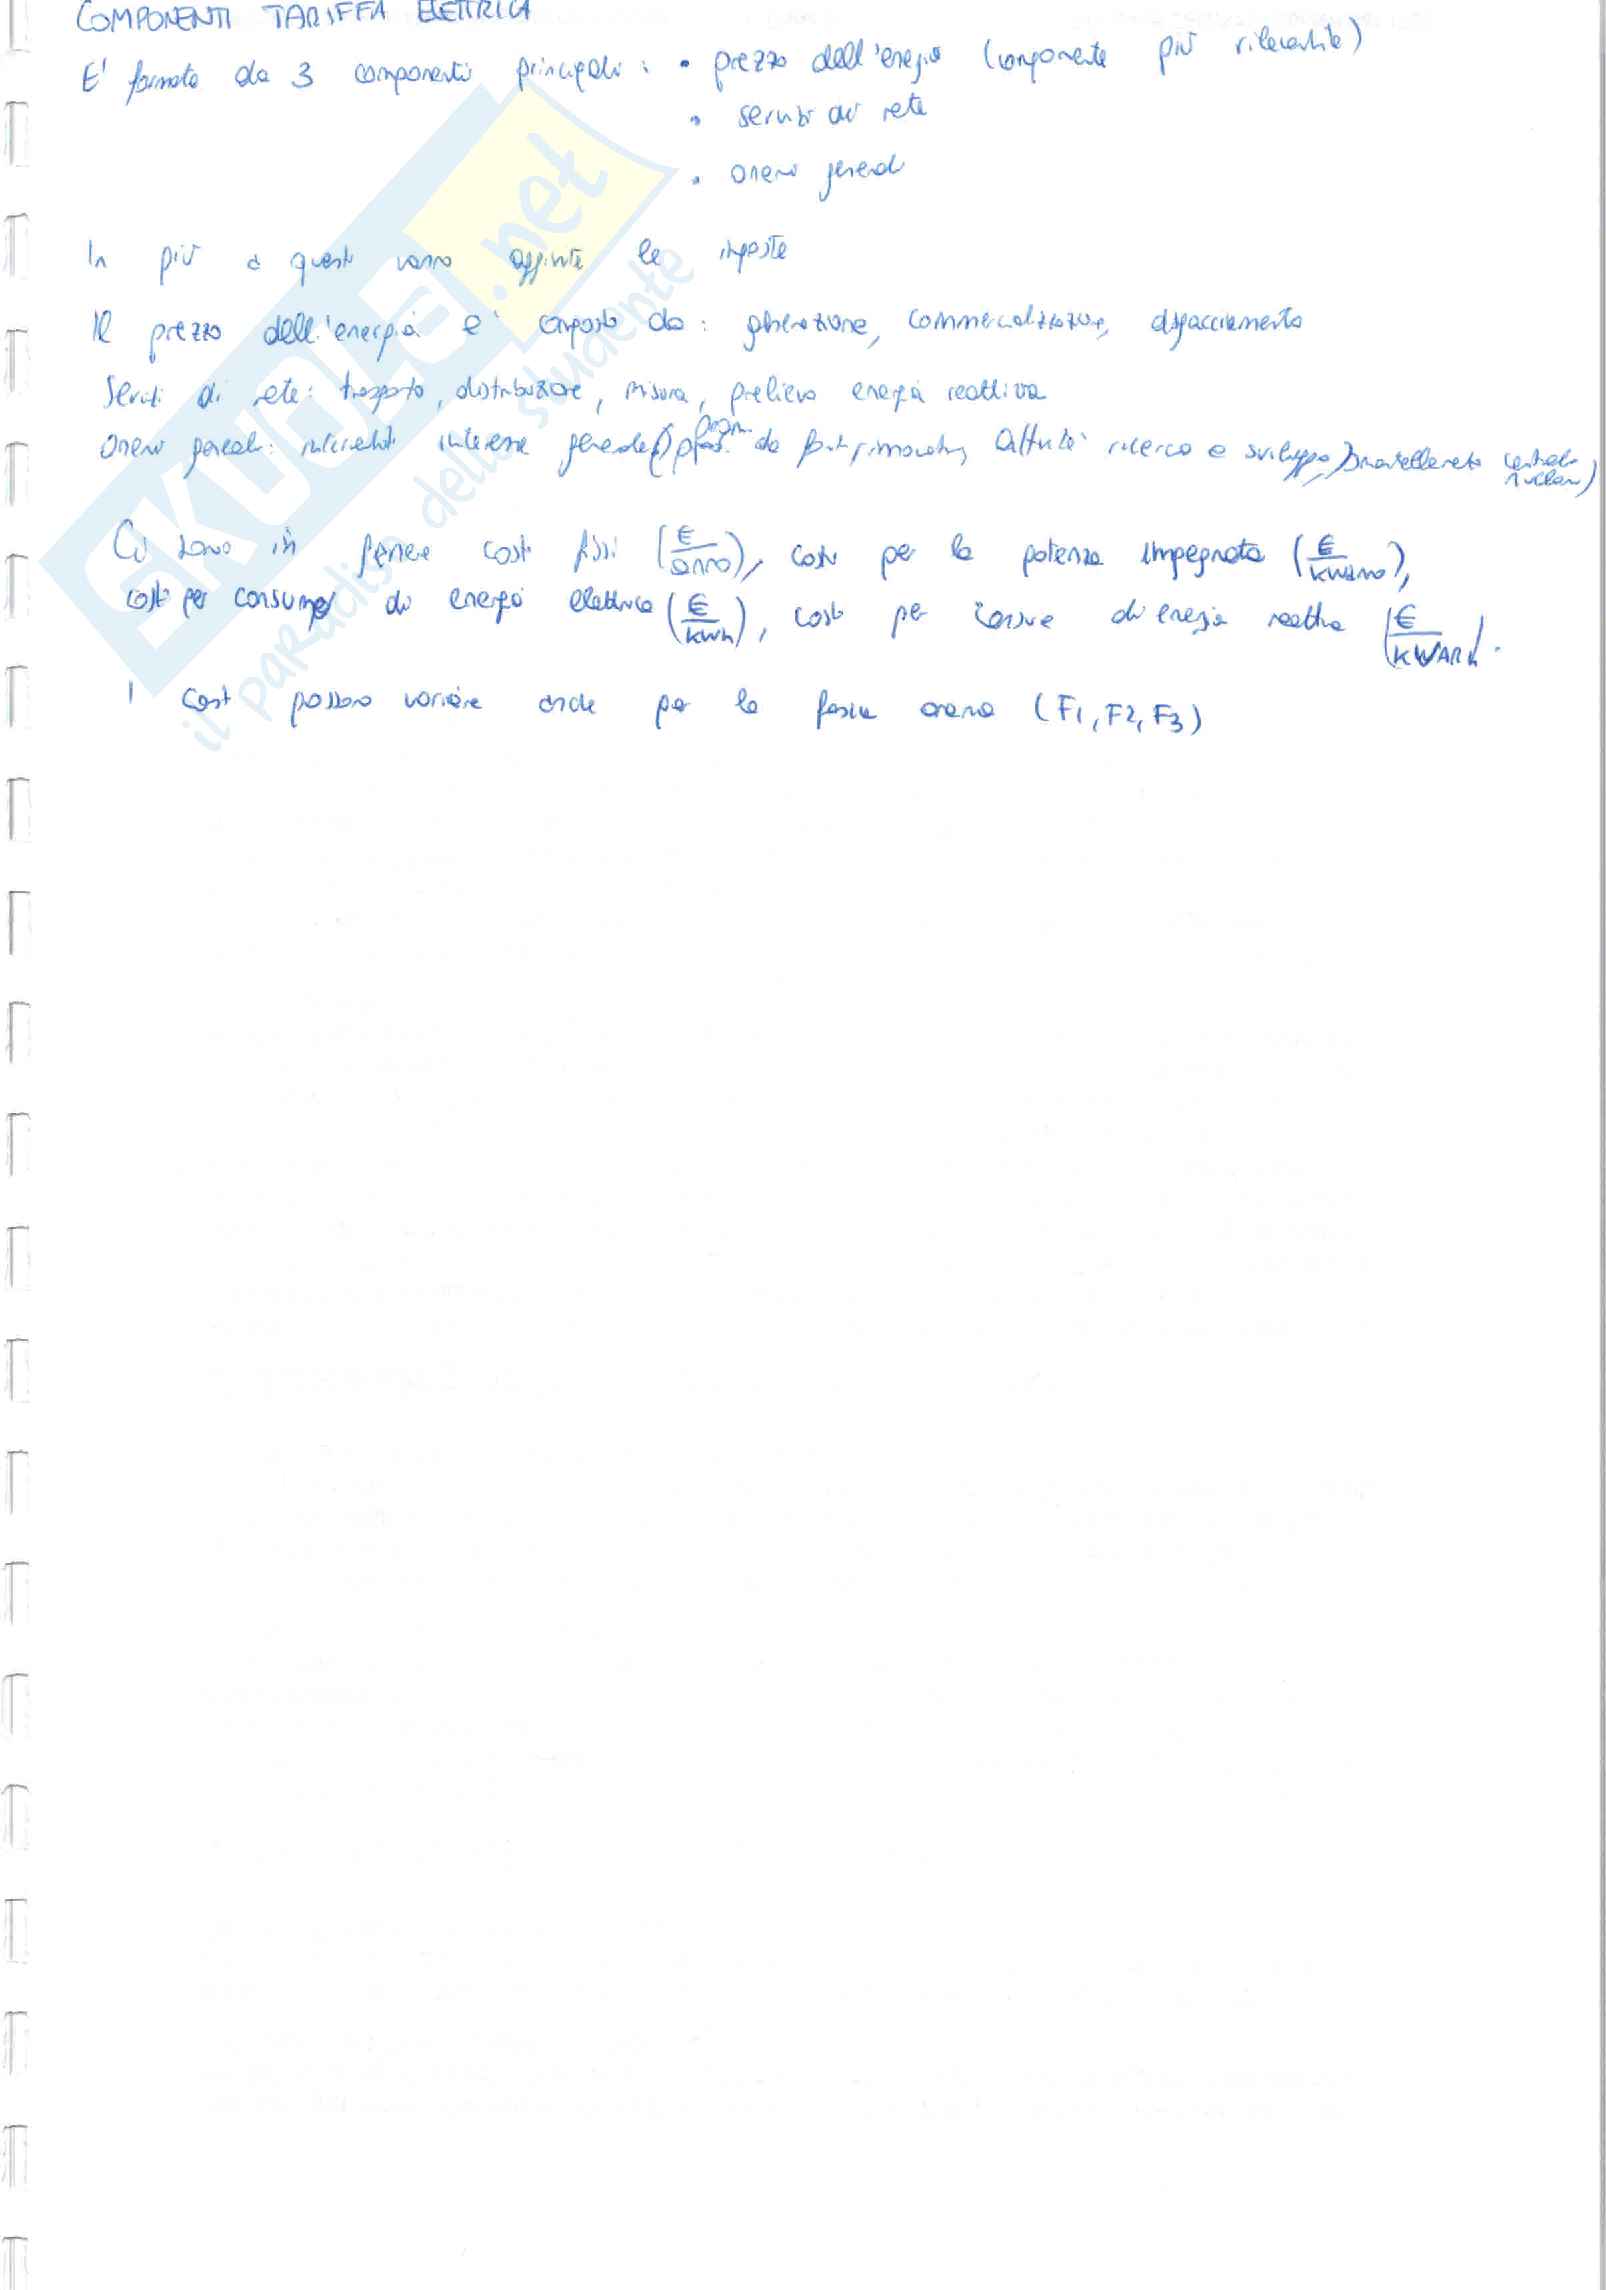 COMPONENTI TARIFFA ELETTRICA
E' formata da 3 componenti principali: • prezzo dell'energia (componente più rilevante)
• servizi di rete
• oneri generali
In più a questi vanno aggiunte le imposte
Il prezzo dell'energia e' composto da: generazione, commercializzazione, dispacciamento
Servizi di rete: trasporto, distribuzione, misura, prelievo energia reattiva
Oneri generali: interesse generale da fonti rinnovabili, attività ricerca e sviluppo, smantellamento centrali nucleari)
Ci sono in genere costi fissi (€/anno), costi per la potenza impegnata (€/kWanno),
costi per consumo di energia elettrica (€/kWh), costi per di energia reattiva (€/KVARh).
I costi possono variare anche per la fascia oraria (F1, F2, F3)
SKUOLA.net
il paradiso dello studente